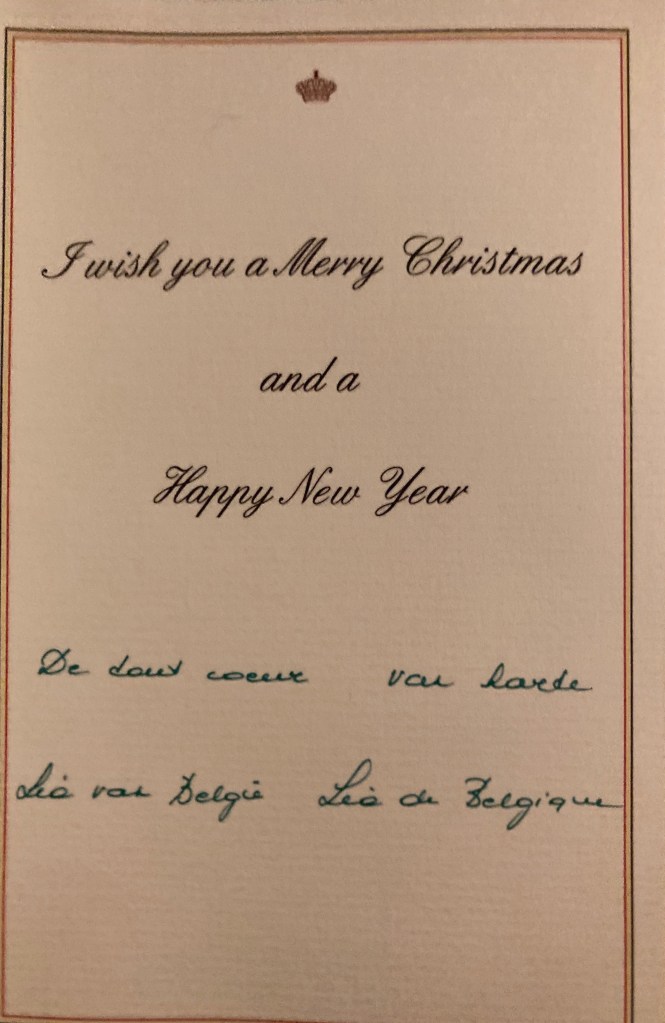 I wish you a Merry Christmas
and a
Happy New Year
De tout coeur van harte
Léa van België Léa de Belgique